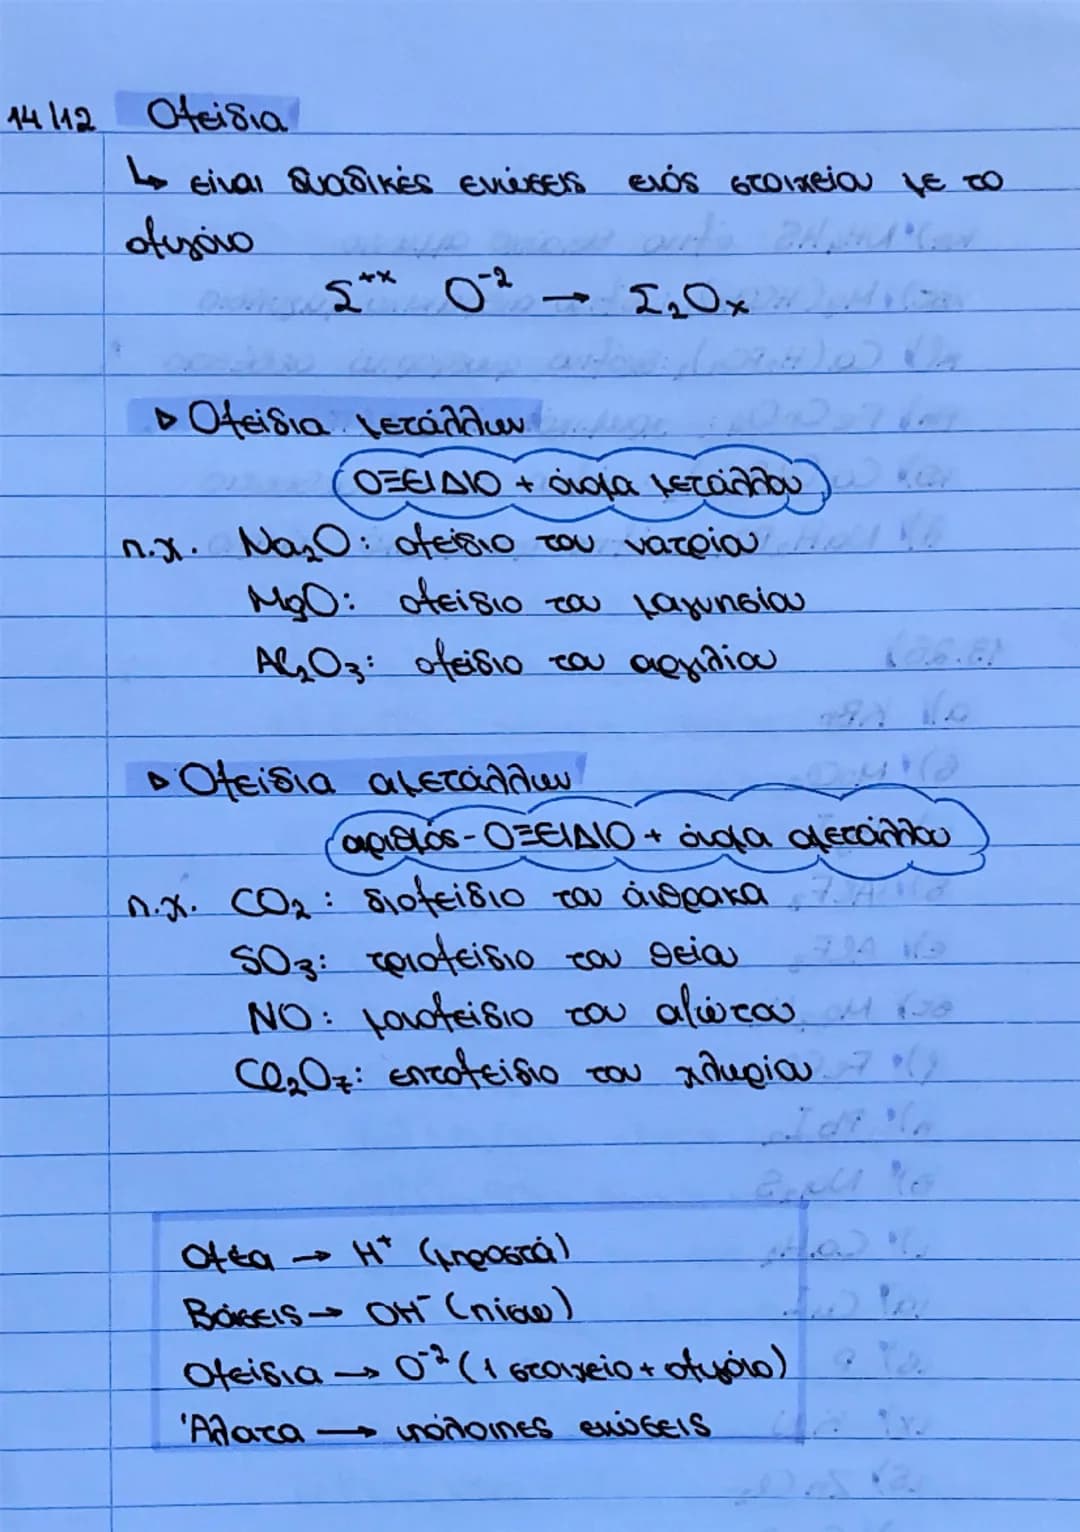 14/12 Οξείδια
↳ είναι δυαδικές ενώσεις ενός στοιχείου με το
οξυγόνο
Σ⁺ˣ O⁻² → Σ₂Oₓ
▷ Οξείδια μετάλλων
ΟΞΕΙΔΙΟ + όνομα μετάλλου
π.χ. Na₂O: οξείδιο του νατρίου
MgO: οξείδιο του μαγνησίου
Al₂O₃: οξείδιο του αργιλίου
▷ Οξείδια αμετάλλων
αριθμός - ΟΞΕΙΔΙΟ + όνομα αμετάλλου
π.χ. CO₂: διοξείδιο του άνθρακα
SO₃: τριοξείδιο του θείου
NO: μονοξείδιο του αζώτου
Cl₂O₇: επτοξείδιο του χλωρίου
Οξέα → H⁺ (μπροστά)
Βάσεις → OH⁻ (πίσω)
Οξείδια → O⁻² (1 στοιχείο + οξυγόνο)
Άλατα → υπόλοιπες ενώσεις